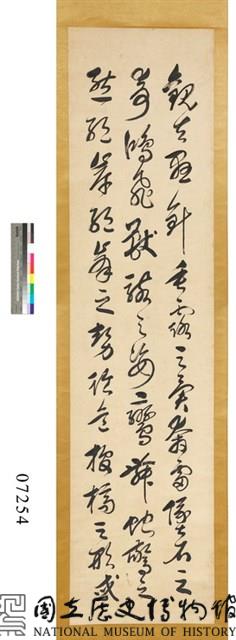 觀夫懸針垂露之異奔雷墜石之
奇鴻飛獸駭之姿鸞舞蛇驚之
態絕岸頹峰之勢臨危據槁之形或
07254
國立歷史博物館
NATIONAL MUSEUM OF HISTORY